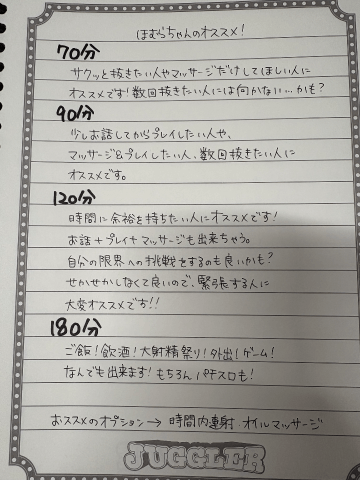 ほむらちゃんのオススメ!
70分
サクッと抜きたい人やマッサージだけしてほしい人に
オススメです!数回抜きたい人には向かない…かも?
90分
少しお話してからプレイしたい人や、
マッサージ&プレイしたい人、数回抜きたい人に
オススメです。
120分
時間に余裕を持ちたい人にオススメです!
お話+プレイ+マッサージも出来ちゃう。
自分の限界への挑戦をするのも良いかも?
せかせかしなくて良いので、緊張する人に
大変オススメです!!
180分
ご飯!飲酒!大射精祭り!外出!ゲーム!
なんでも出来ます!もちろんパチスロも!
おススメのオプション→時間内連射・オイルマッサージ
JUGGLER